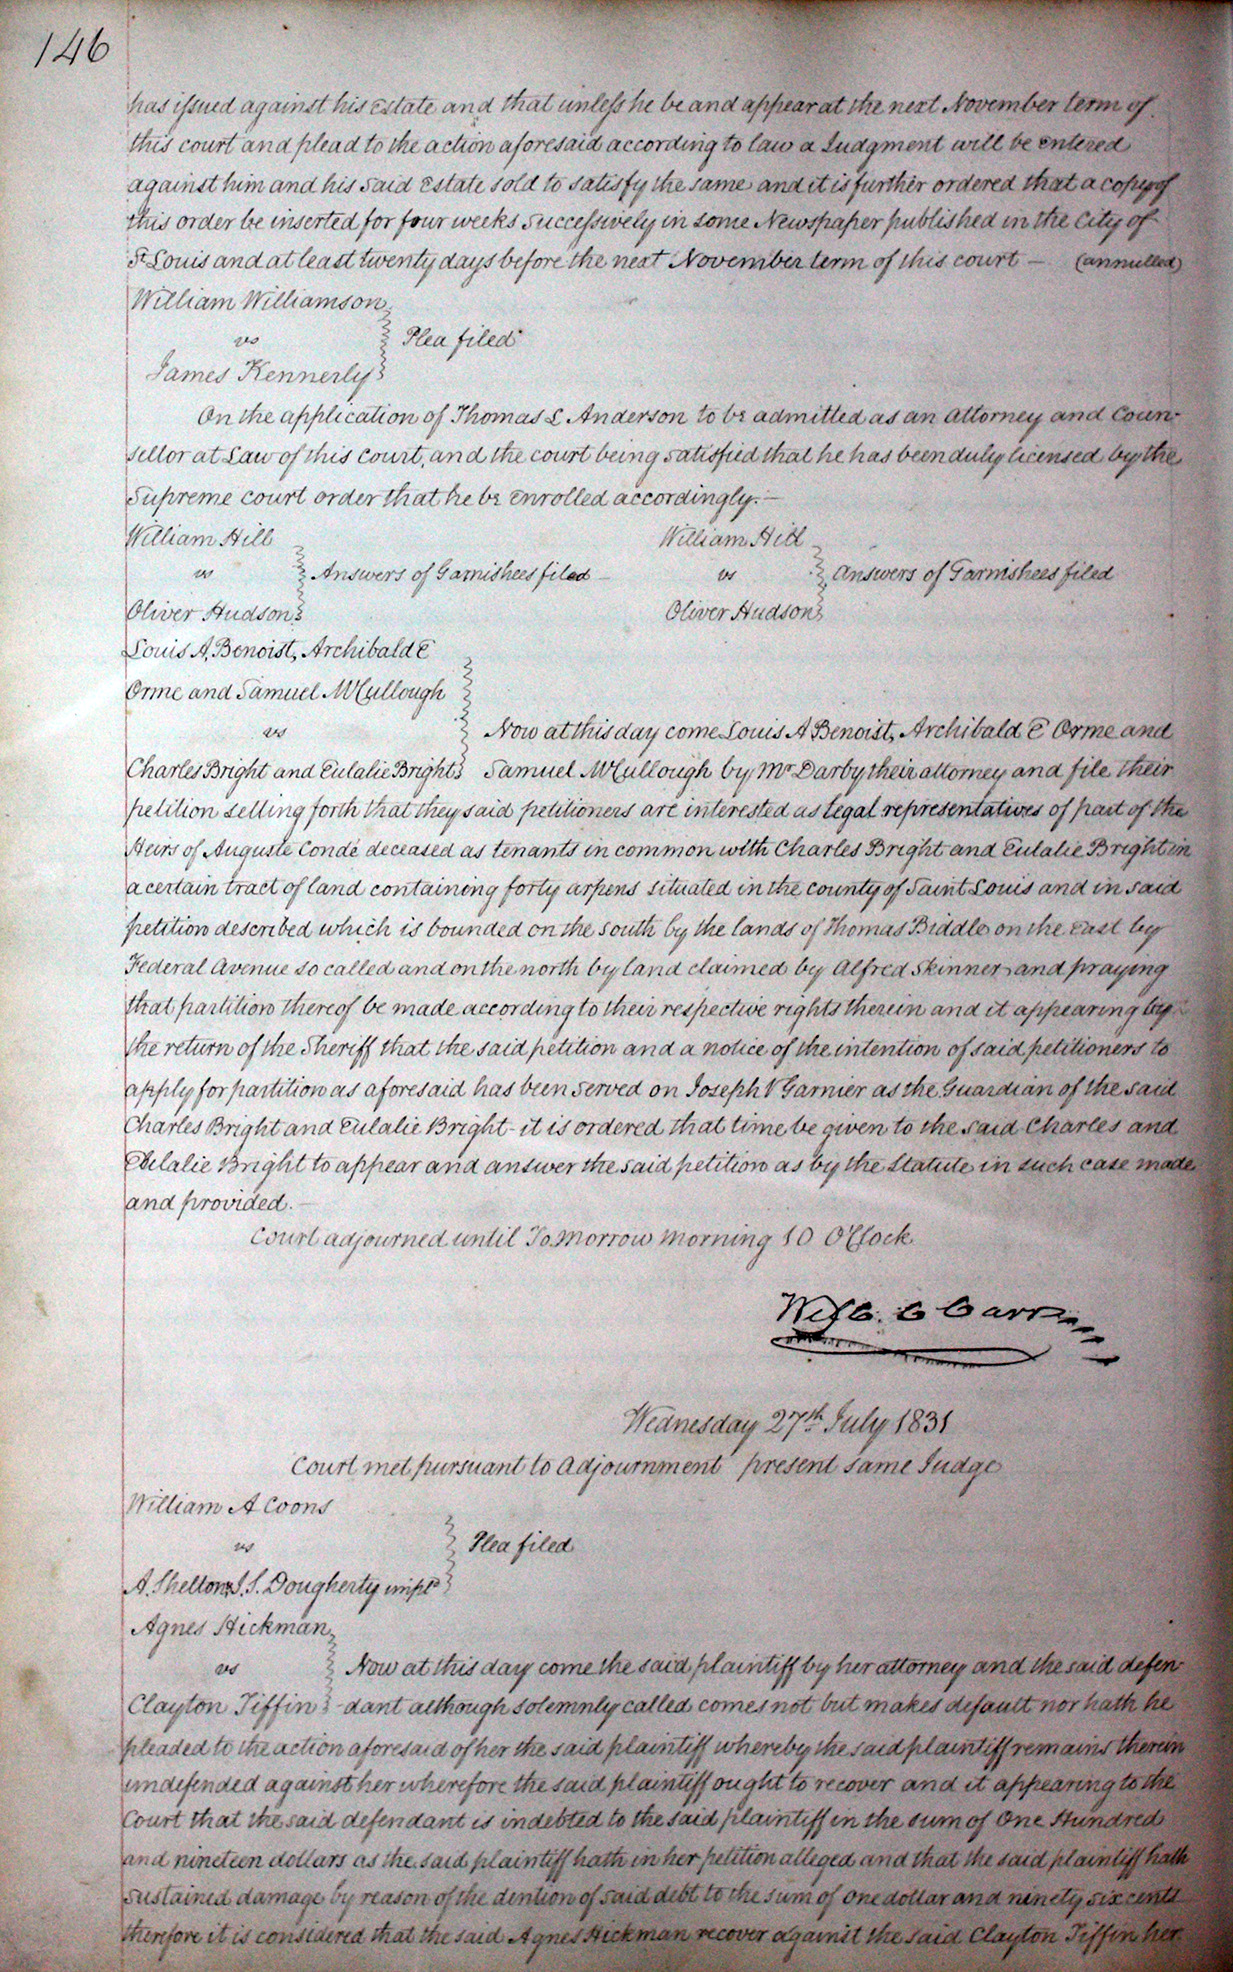 146
has issued against his Estate and that unless he be and appear at the next November term of
this court and plead to the action aforesaid according to law a Judgment will be entered
against him and his said Estate sold to satisfy the same and it is further ordered that a copy of
this order be inserted for four weeks successively in some Newspaper published in the City of
St Louis and at least twenty days before the next November term of this court — (annulled)
William Williamson
vs Plea filed
James Kennerly
On the application of Thomas L Anderson to be admitted as an attorney and Coun-
sellor at Law of this Court, and the court being satisfied that he has been duly licensed by the
Supreme court order that he be enrolled accordingly.—
William Hill William Hill
vs Answers of Garnishees filed — vs Answers of Garnishees filed
Oliver Hudson Oliver Hudson
Louis A, Benoist, Archibald E
Orme and Samuel McCullough
vs Now at this day come Louis A Benoist, Archibald E Orme and
Charles Bright and Eulalie Bright Samuel McCullough by Mr Darby their attorney and file their
petition setting forth that they said petitioners are interested as legal representatives of part of the
Heirs of Auguste Condé deceased as tenants in common with Charles Bright and Eulalie Bright in
a certain tract of land containing forty arpens situated in the county of Saint Louis and in said
petition described which is bounded on the south by the lands of Thomas Biddle on the East by
Federal Avenue so called and on the north by land claimed by Alfred Skinner and praying
that partition thereof be made according to their respective rights therein and it appearing by
the return of the Sheriff that the said petition and a notice of the intention of said petitioners to
apply for partition as aforesaid has been served on Joseph V Garnier as the Guardian of the said
Charles Bright and Eulalie Bright - it is ordered that time be given to the said Charles and
Eulalie Bright to appear and answer the said petition as by the Statute in such case made
and provided.—
Court adjourned until To.morrow morning 10 O'Clock
Wm. C Carr
Wednesday 27th July 1831
Court met pursuant to Adjournment present same Judge
William A Coons
vs Plea filed
A. Shelton & J. S. Dougherty impld
Agnes Hickman
vs Now at this day come the said plaintiff by her attorney and the said defen-
Clayton Tiffin -dant although solemnly called comes not but makes default nor hath he
pleaded to the action aforesaid of her the said plaintiff whereby the said plaintiff remains therein
undefended against her wherefore the said plaintiff ought to recover and it appearing to the
Court that the said defendant is indebted to the said plaintiff in the sum of One Hundred
and nineteen dollars as the said plaintiff hath in her petition alleged and that the said plaintiff hath
sustained damage by reason of the dention of said debt to the sum of one dollar and ninety six cents
therefore it is considered that the said Agnes Hickman recover against the said Clayton Tiffin her